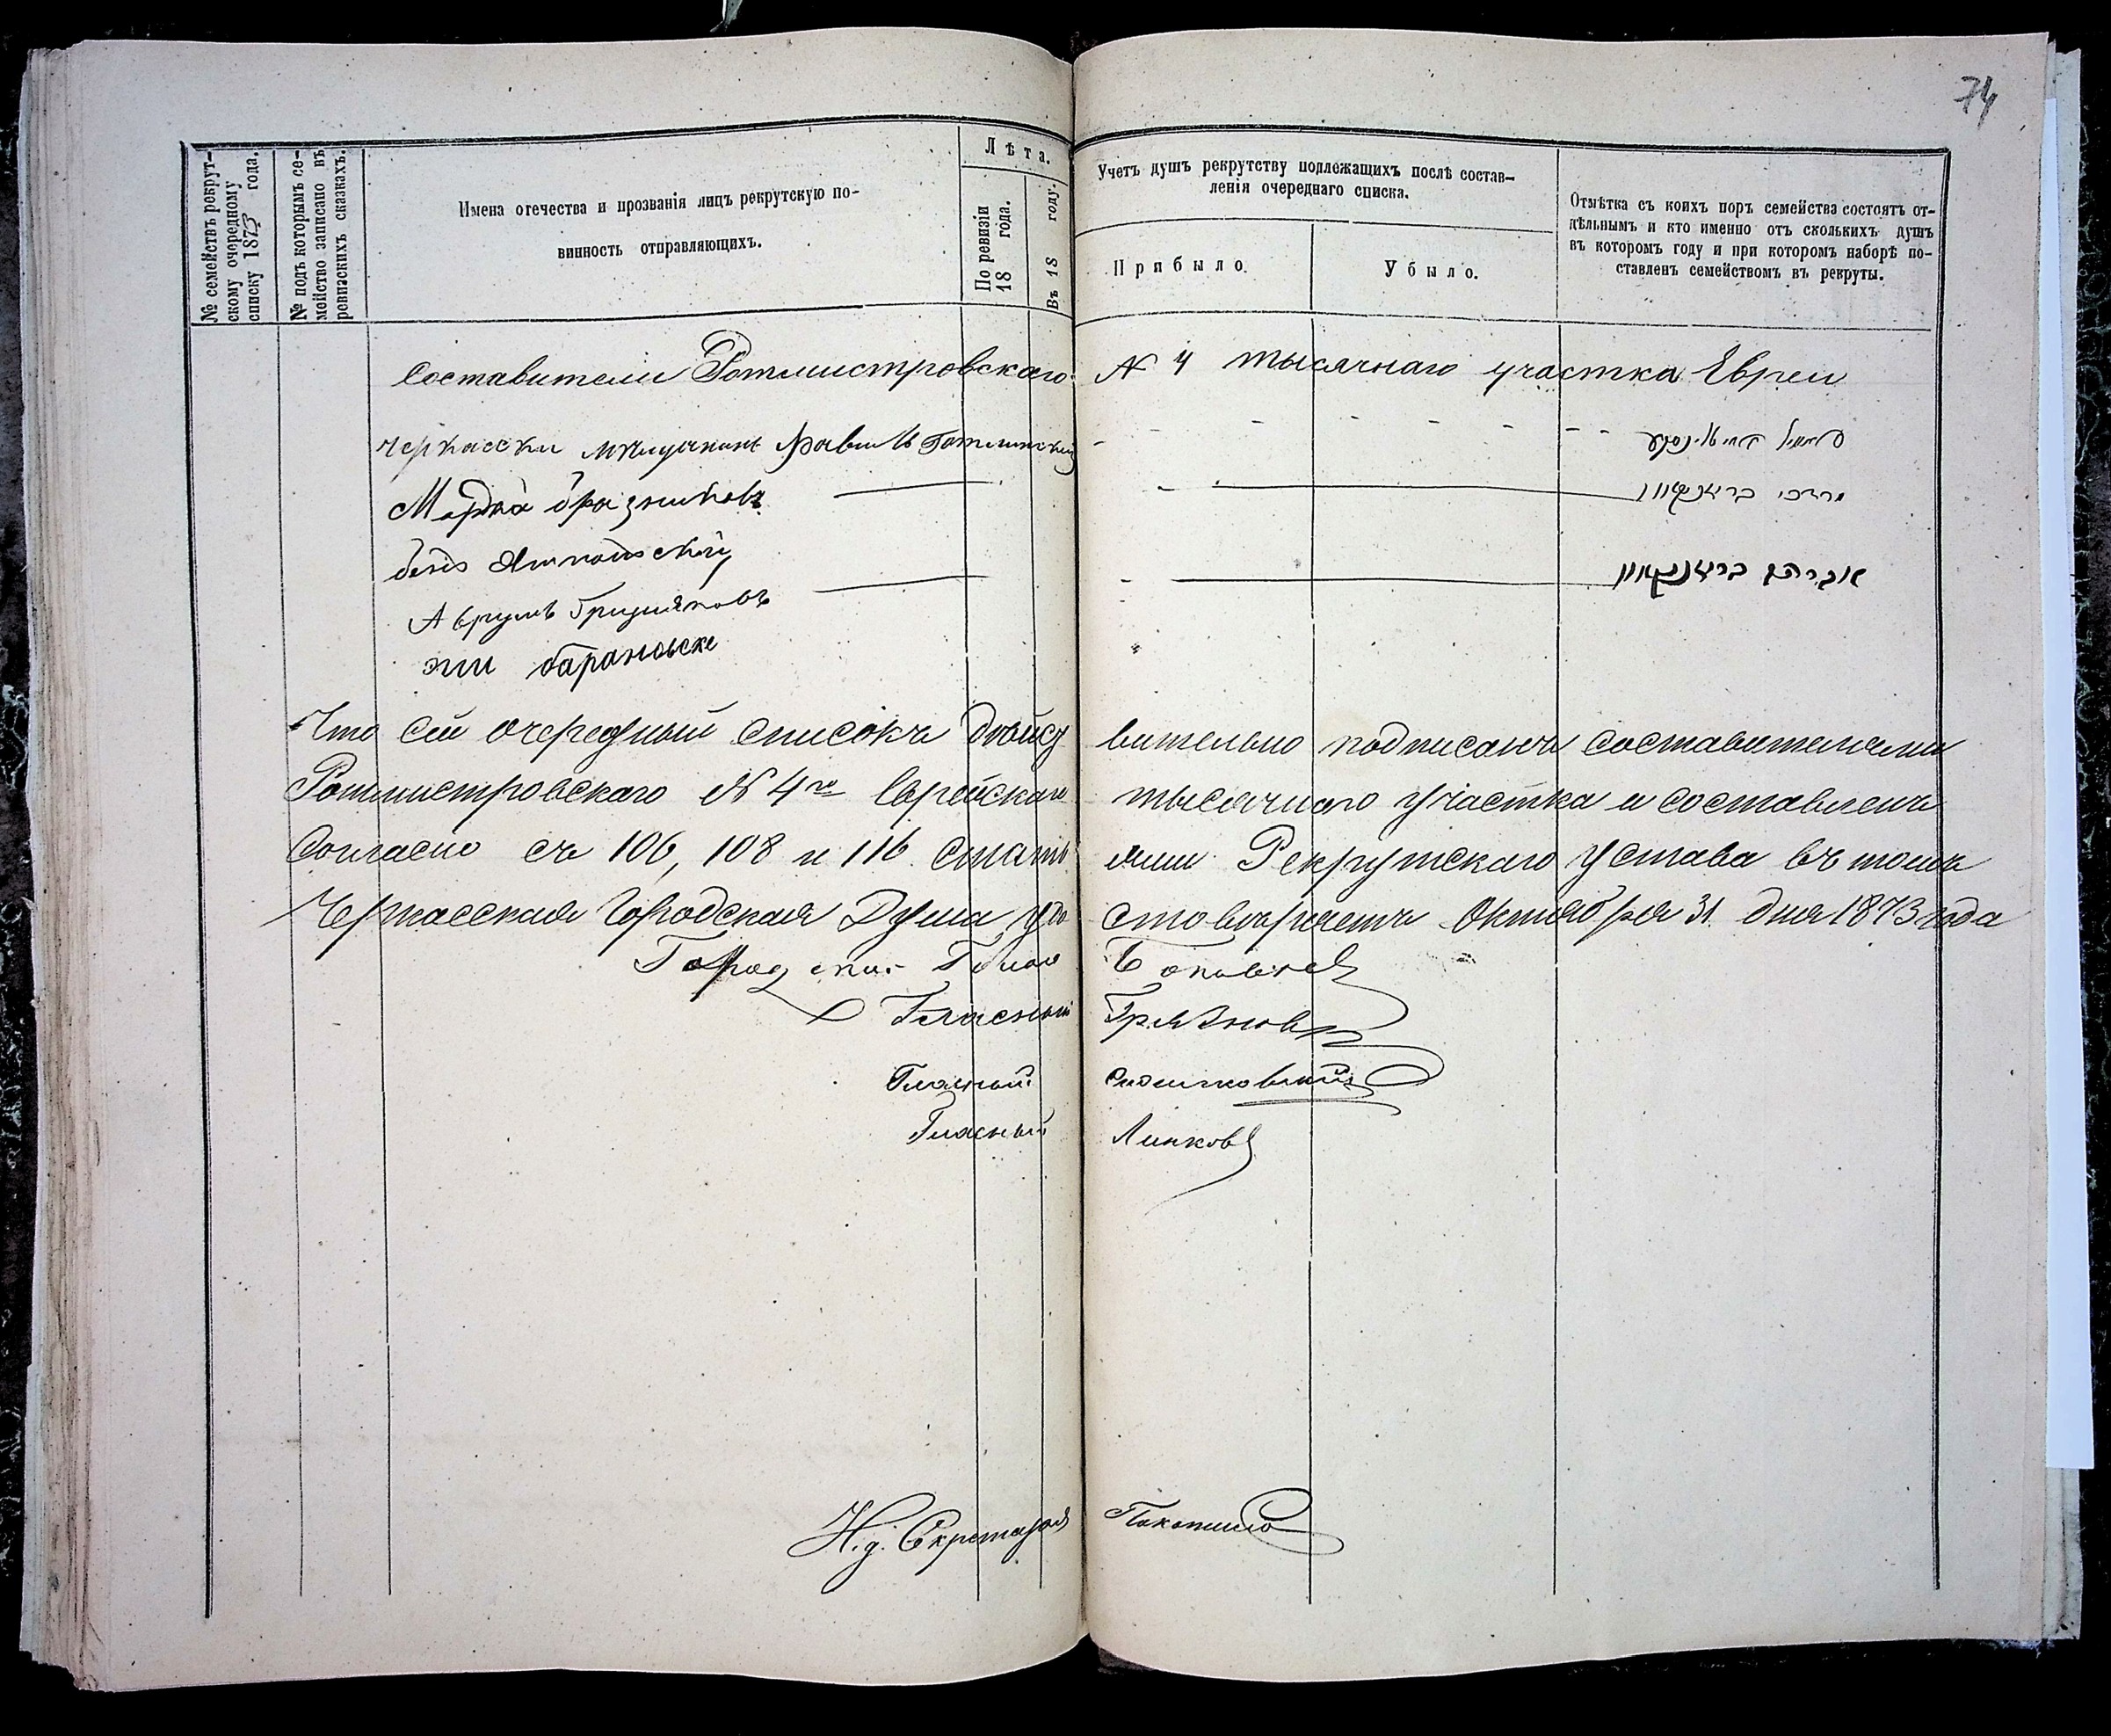 74
№ семействъ рекрут-
скому очередному
списку 1873 года.
№ подъ которымъ се-
мейство записано въ
ревизскихъ сказкахъ.
Имена отечества и прозванія лицъ рекрутскую по-
винность отправляющихъ.
Лѣта.
По ревизіи
18 года.
Въ 18 году.
Учетъ душъ рекрутству подлежащихъ послѣ состав-
ленія очереднаго списка.
Прибыло.
Убыло.
Отмѣтка съ коихъ поръ семейства состоятъ от-
дѣльнымъ и кто именно отъ сколькихъ душъ
въ которомъ году и при которомъ наборѣ по-
ставленъ семействомъ въ рекруты.
Составители Ротмистровскаго N 4 тысячнаго участка Евреи
Черкасски мещанинъ
Мордко
מרדכי
Аврумъ
אברהם
барановске
Что сей очередный списокъ дѣйст вительно подписанъ составителями
Ротмистровскаго N 4го Еврейскаго тысячнаго участка и составленъ
Согласно съ 106, 108 и 116 стать ями Рекрутскаго Устава въ томъ
Черкасская Городская Дума удо стовѣряетъ Октября 31 дня 1873 года
Городской Голова
Гласный
Гласный
Гласный Линковъ
И. д. Секретаря